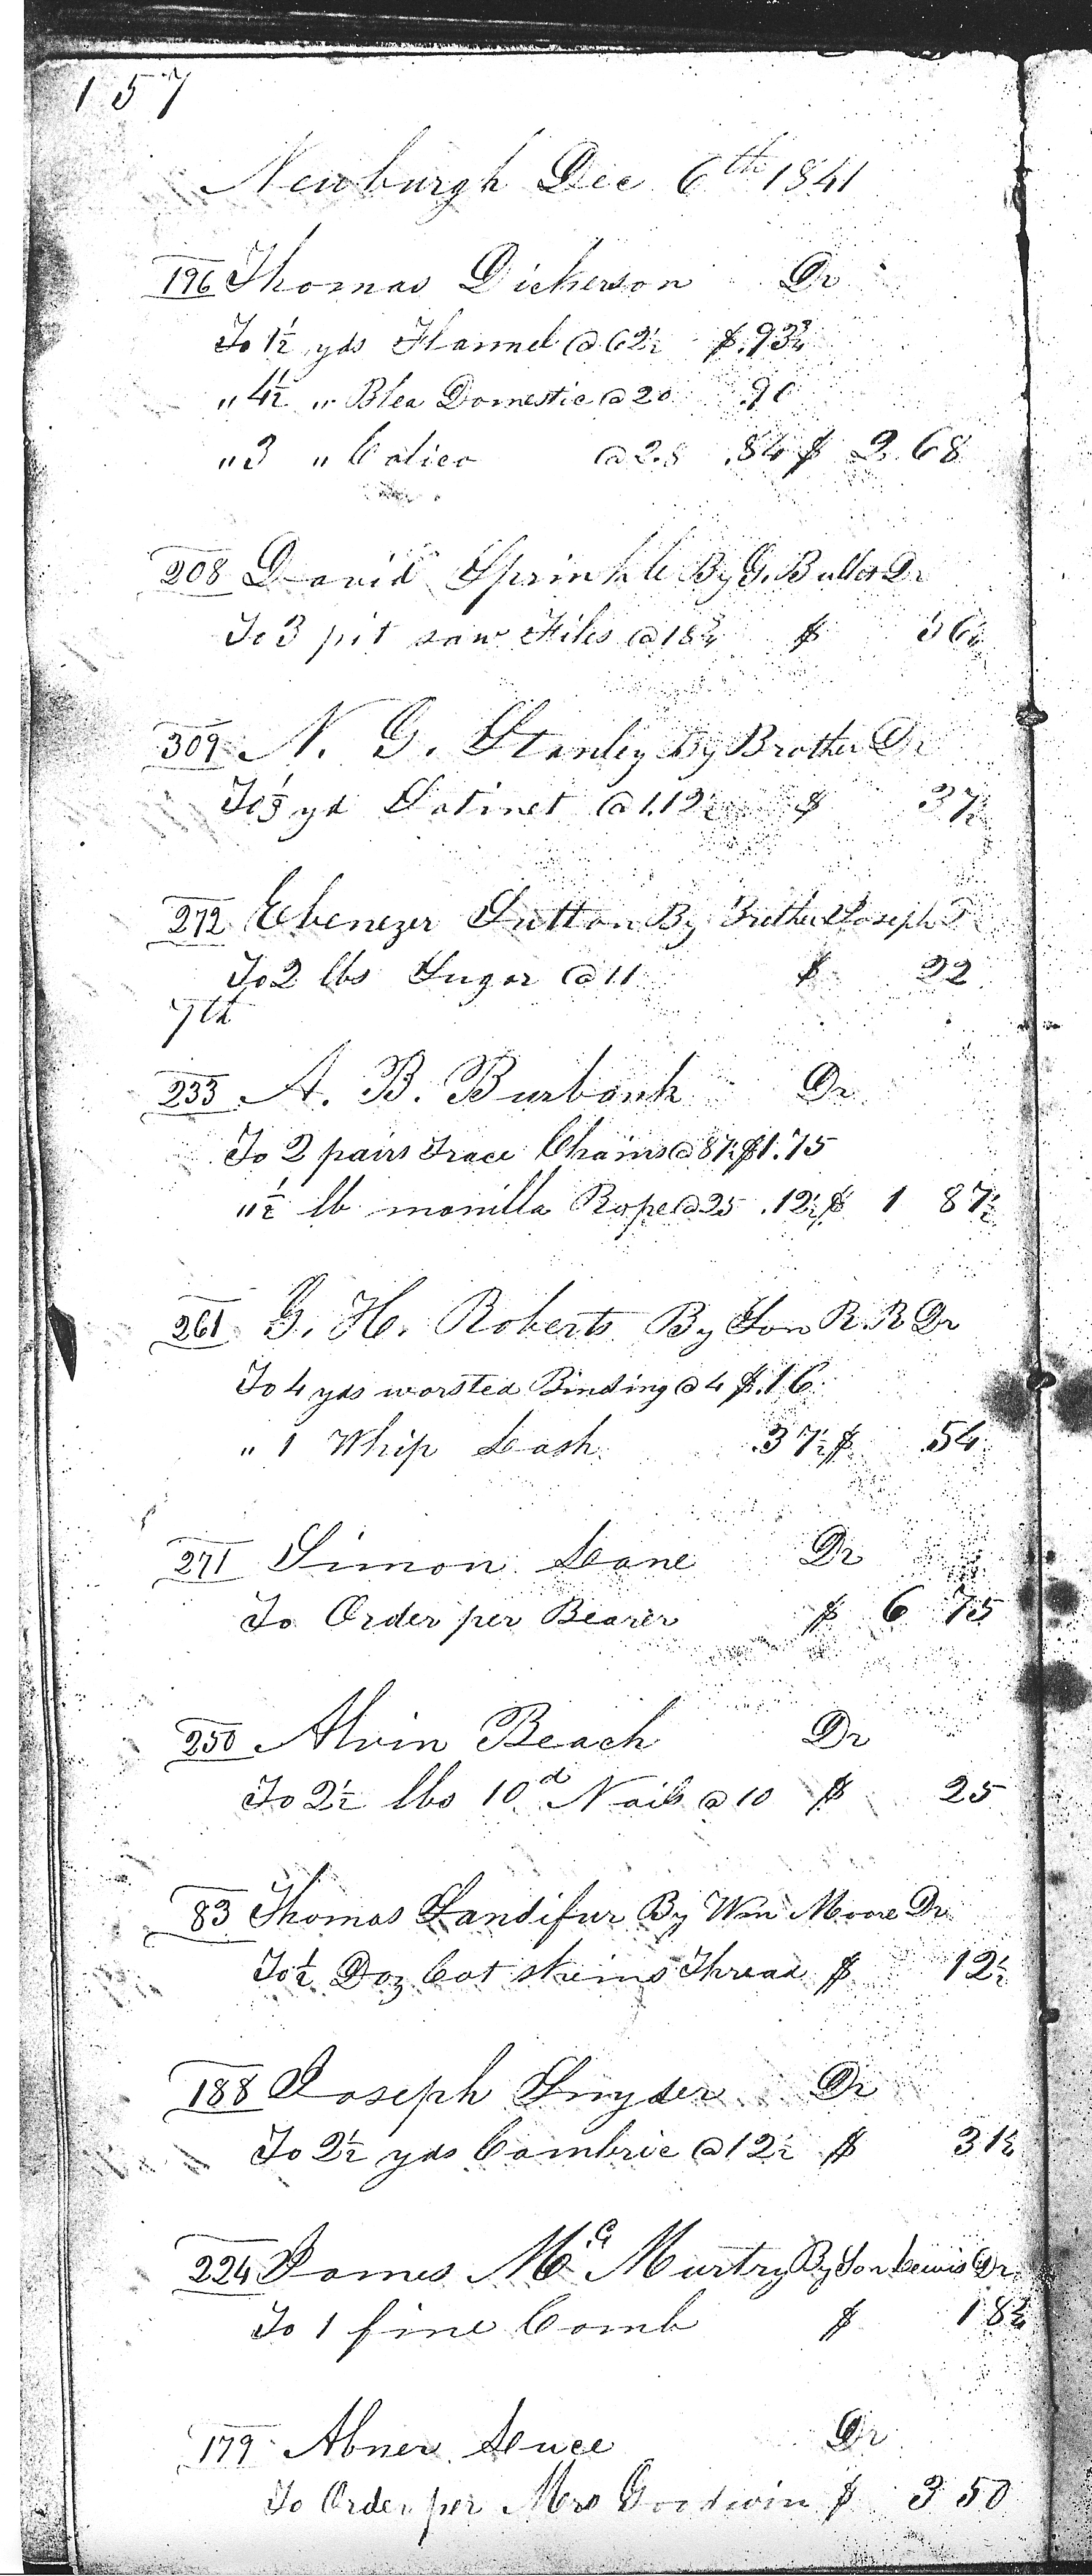 157
Newburgh Dec 6th 1841
196 Thomas Dickerson Dr
To 1½ yds Flannel @ 62½ $.93¾
" 4½ " Blea Domestic @ 20 .90
" 3 " Calico @ 28 .84 $ 2.68
208 David Sprinkle By G. Butler Dr
To 3 pit saw Files @ 18¾ $ 56¼
309 N. G. Stanley By Brother Dr
To ⅓ yd Satinet @ 1.12½ $ 37½
272 Ebenezer Sutton By Brother Joseph Dr
To 2 lbs Sugar @ 11 $ 22
7th
233 A. B. Burbank Dr
To 2 pairs Trace Chains @ 87½ $1.75
" ½ lb manilla Rope @ 25 .12½ $ 1 87½
261 G. H. Roberts By Son R. R Dr
To 4 yds worsted Binding @ 4 $.16
" 1 Whip Lash .37½ $ .54
271 Simon Lane Dr
To Order per Bearer $ 6 75
250 Alvin Beach Dr
To 2½ lbs 10d Nails @ 10 $ 25
83 Thomas Sandifur By Wm Moore Dr
To ½ Doz Cot skeins Thread $ 12½
188 Joseph Snyder Dr
To 2½ yds Cambric @ 12½ $ 31½
224 James Mc Murtry By Son Lewis Dr
To 1 fine Comb $ 18¾
179 Abner Luce Dr
To Order per Mrs Goodwin $ 3 50